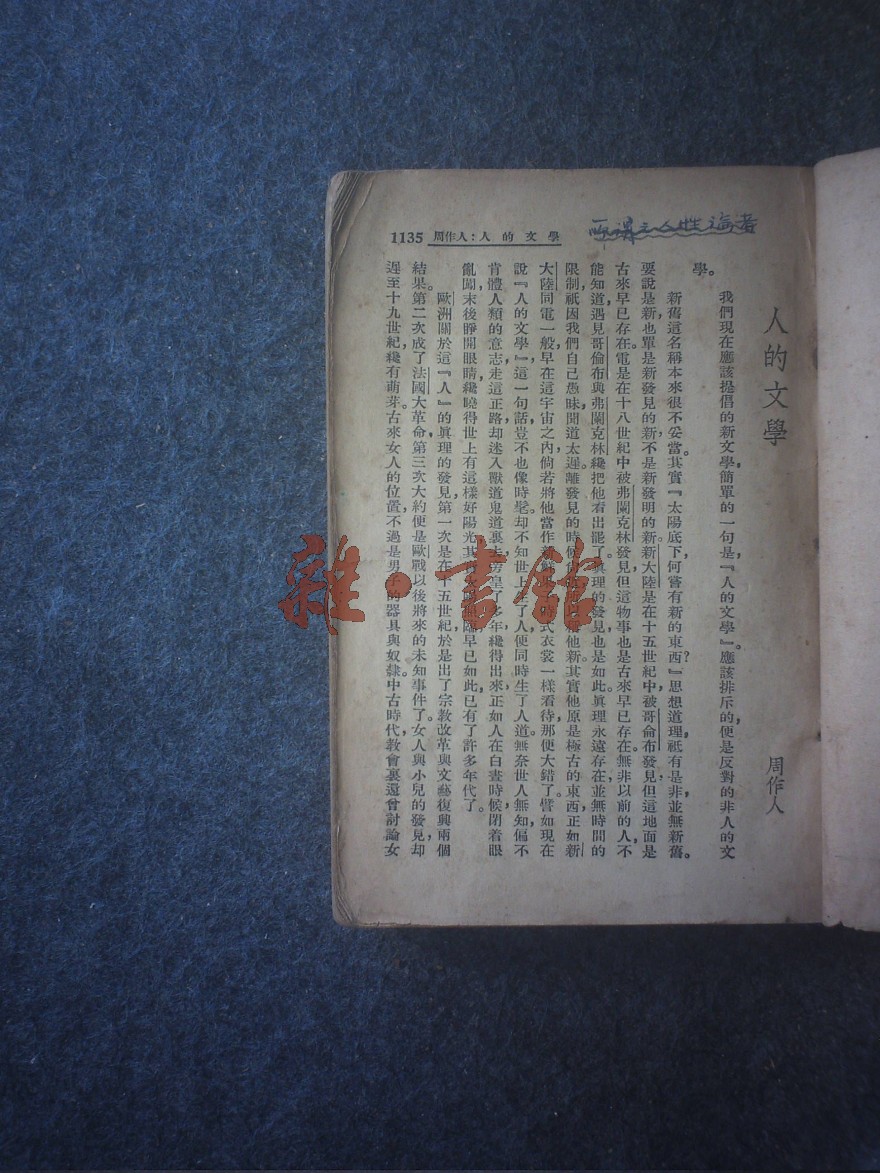 1135 周作人：人的文學
人的文學
周作人
我們現在應該提倡的新文學，簡單的一句是，『人的文學』。應該排斥的，便是反對的非人的文
學。
新舊這名稱，本來很不妥當。其實『太陽底下，何嘗有新的東西？』思想道理，祇有是非，並無新舊。
要說是新，也單是新發見的新，不是新發明的新。新大陸是在十五世紀中，被哥侖布發見，但這地面是
古來早已存在。電是在十八世紀中，被弗蘭克林發見，但這物事也是古來早已存在。無非以前的人，不
能知道，遇見哥倫布與弗蘭克林纔把他看出罷了。眞理的發見，也是如此。眞理永遠存在，並無時間的
限制，祇因我們自己愚昧，聞道太遲，離發見的時候他新。其實他原是極古的東西，正如新
大陸同電一般，早在這宇宙之內，倘若將他當作式衣裳一樣看待，那便大錯了。譬如現在
說『人的文學』，這一句話，豈不也像時髦。却不知世上生了人，便同時生了人道。無奈世人無知，偏不
肯體人類的意志，走這正路，却迷入獸道鬼道裏去，皇了多年，纔得出來。正如人在白晝時候，閉着眼
亂闖，末後睜開眼睛，纔曉得世上有這樣好陽光，其早已如此，已有了許多年代了。
歐洲關於這『人』的眞理的發見，第一次是在十五世紀，於是出了宗教改革與文藝復興兩個
結果。第二次成了法國大革命，第三次大約便是歐戰以後將來的未知事件了。女人與小兒的發見，却
遲至十九世紀，纔有萌芽。古來女人的位置，不過是男子的器具與奴隸。中古時代，教會裏還會討論女
雜·書館